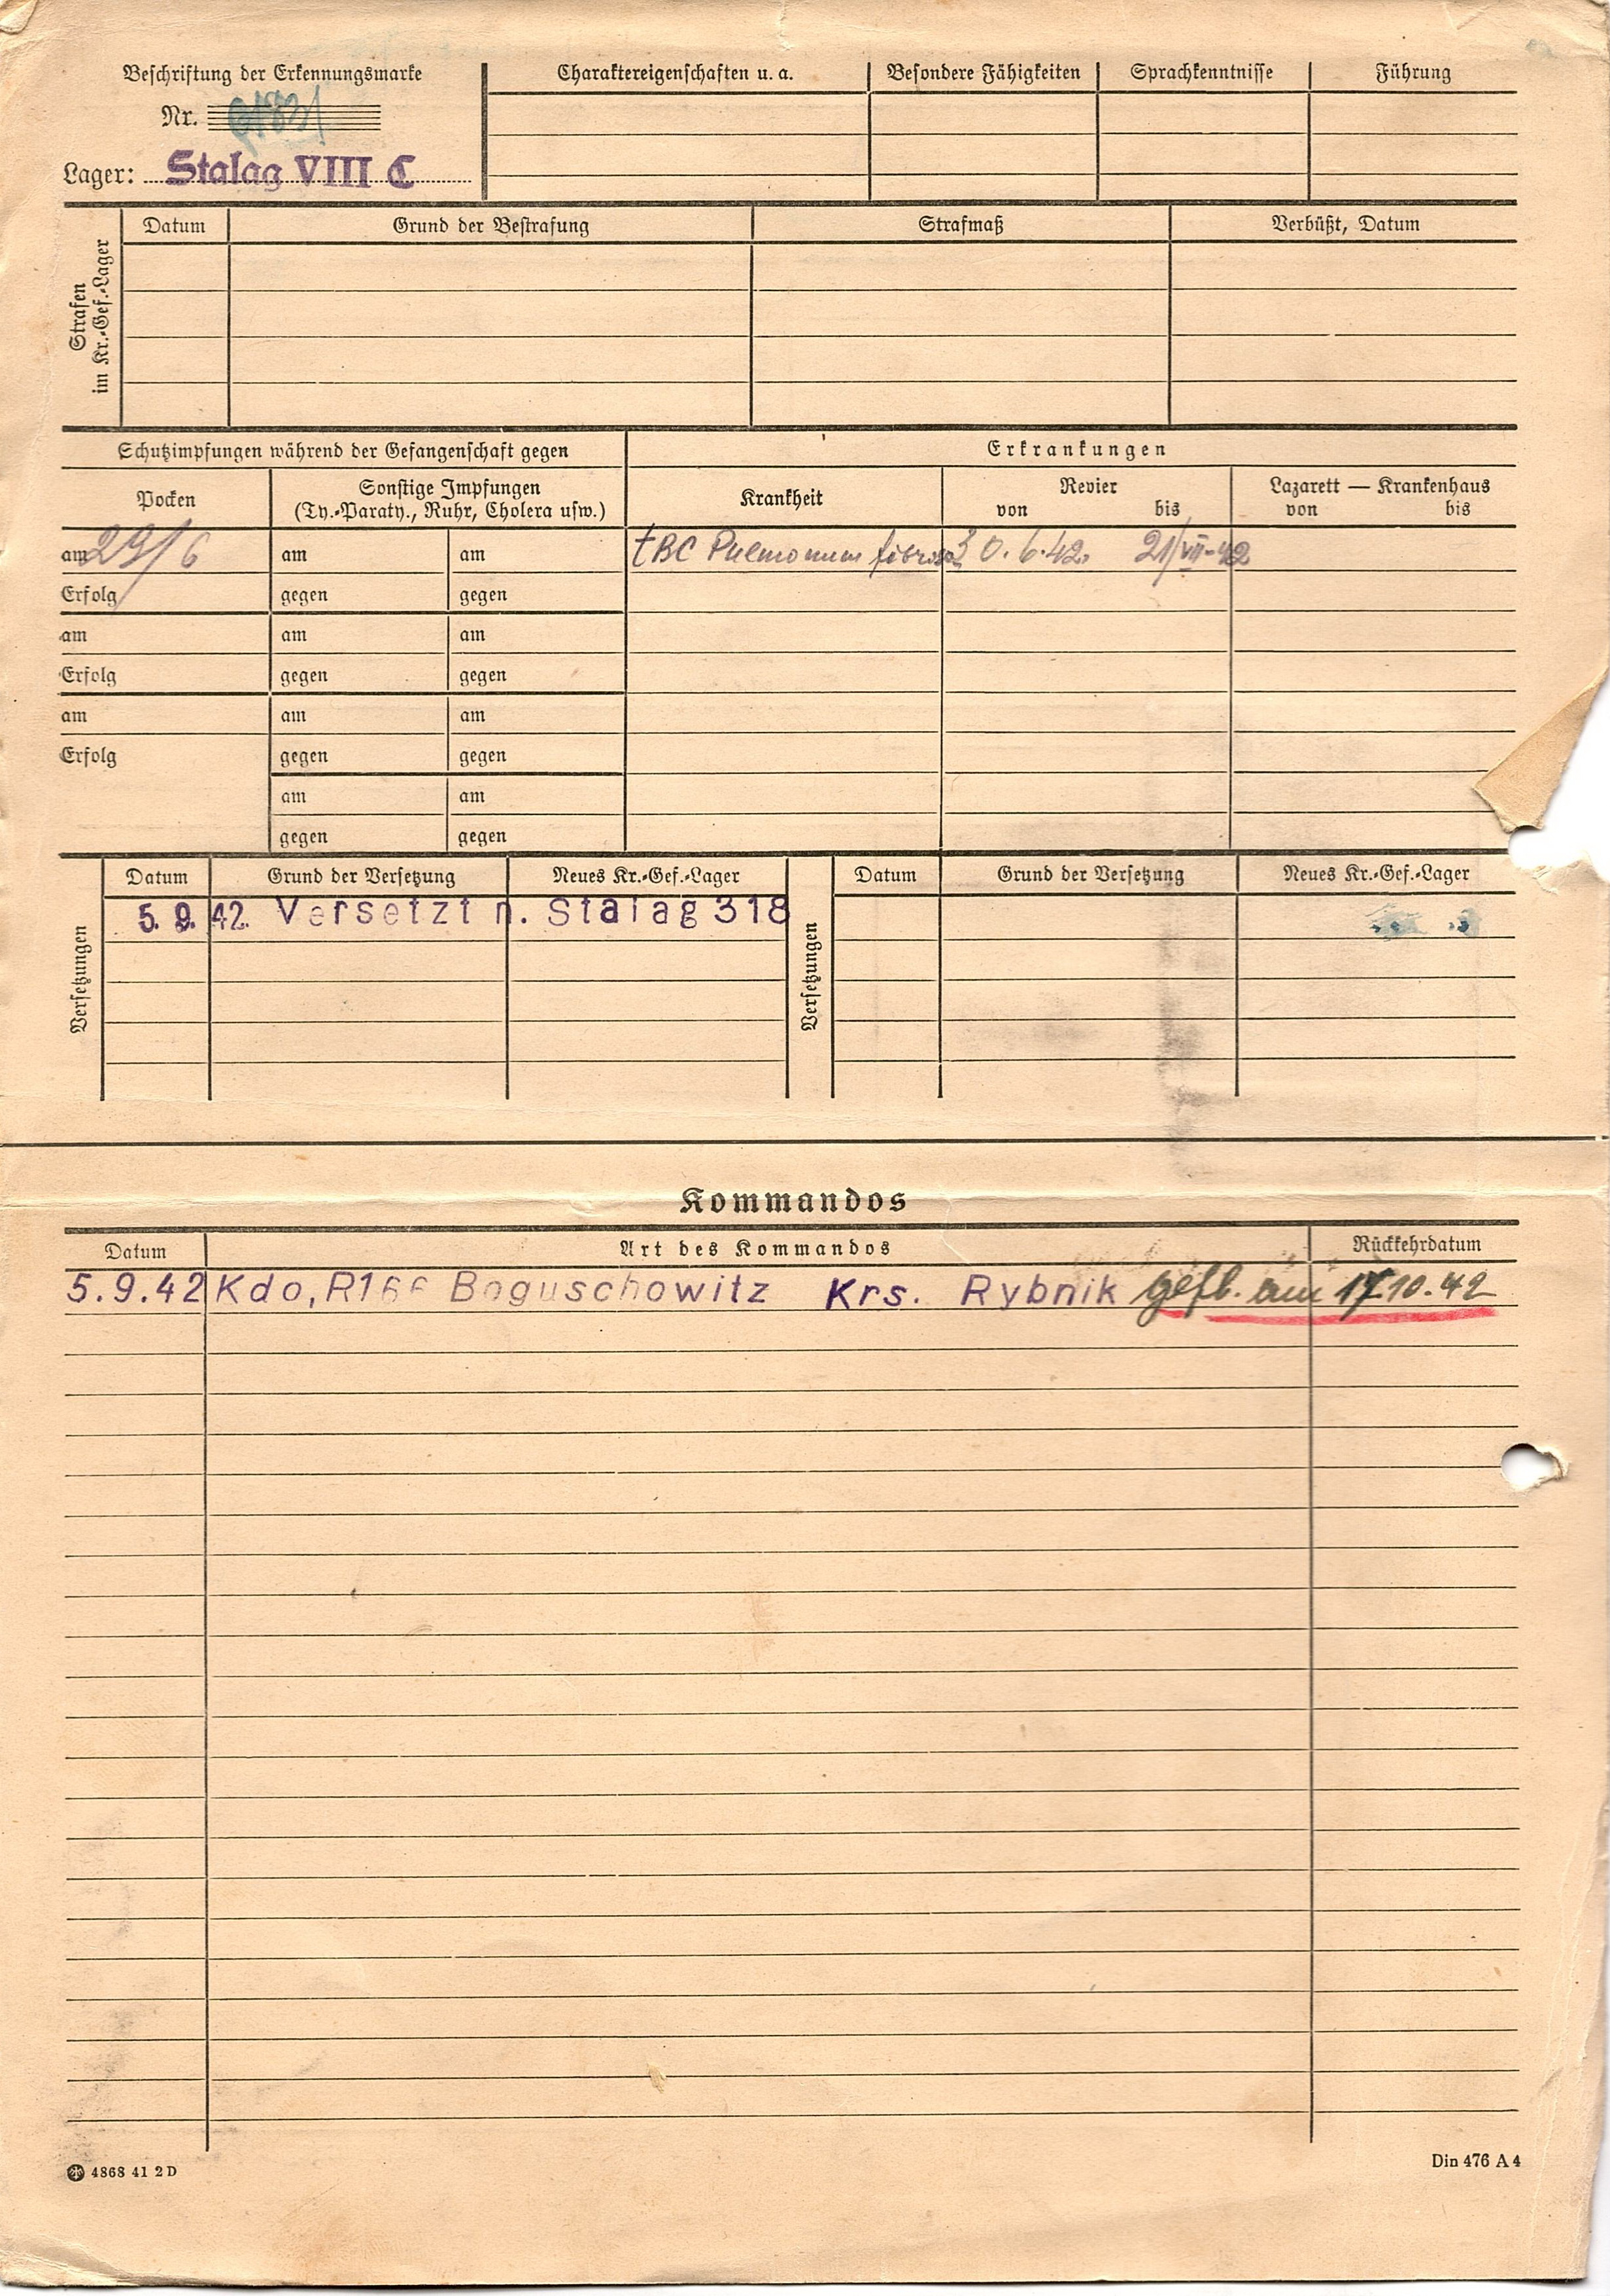 Beschriftung der Erkennungsmarke
Nr.
Lager: Stalag VIII C
Charaktereigenschaften u. a. Besondere Fähigkeiten Sprachkenntnisse Führung
Strafen im Kr.-Gef.-Lager
Datum Grund der Bestrafung Strafmaß Verbüßt, Datum
Schutzimpfungen während der Gefangenschaft gegen Erkrankungen
Pocken Sonstige Impfungen (Ty.-Paraty., Ruhr, Cholera usw.) Krankheit Revier von bis Lazarett — Krankenhaus von bis
am 29/6 am am tBC Pulmonum fibrosa 30.6.42. 21/VII-42
Erfolg gegen gegen
am am am
Erfolg gegen gegen
am am am
Erfolg gegen gegen
am am
gegen gegen
Versetzungen Datum Grund der Versetzung Neues Kr.-Gef.-Lager Versetzungen Datum Grund der Versetzung Neues Kr.-Gef.-Lager
5. 9. 42. Versetzt n. Stalag 318
Kommandos
Datum Art des Kommandos Rückkehrdatum
5.9.42 Kdo, R166 Boguschowitz Krs. Rybnik gefl. am 17.10.42
4868 41 2 D
Din 476 A 4